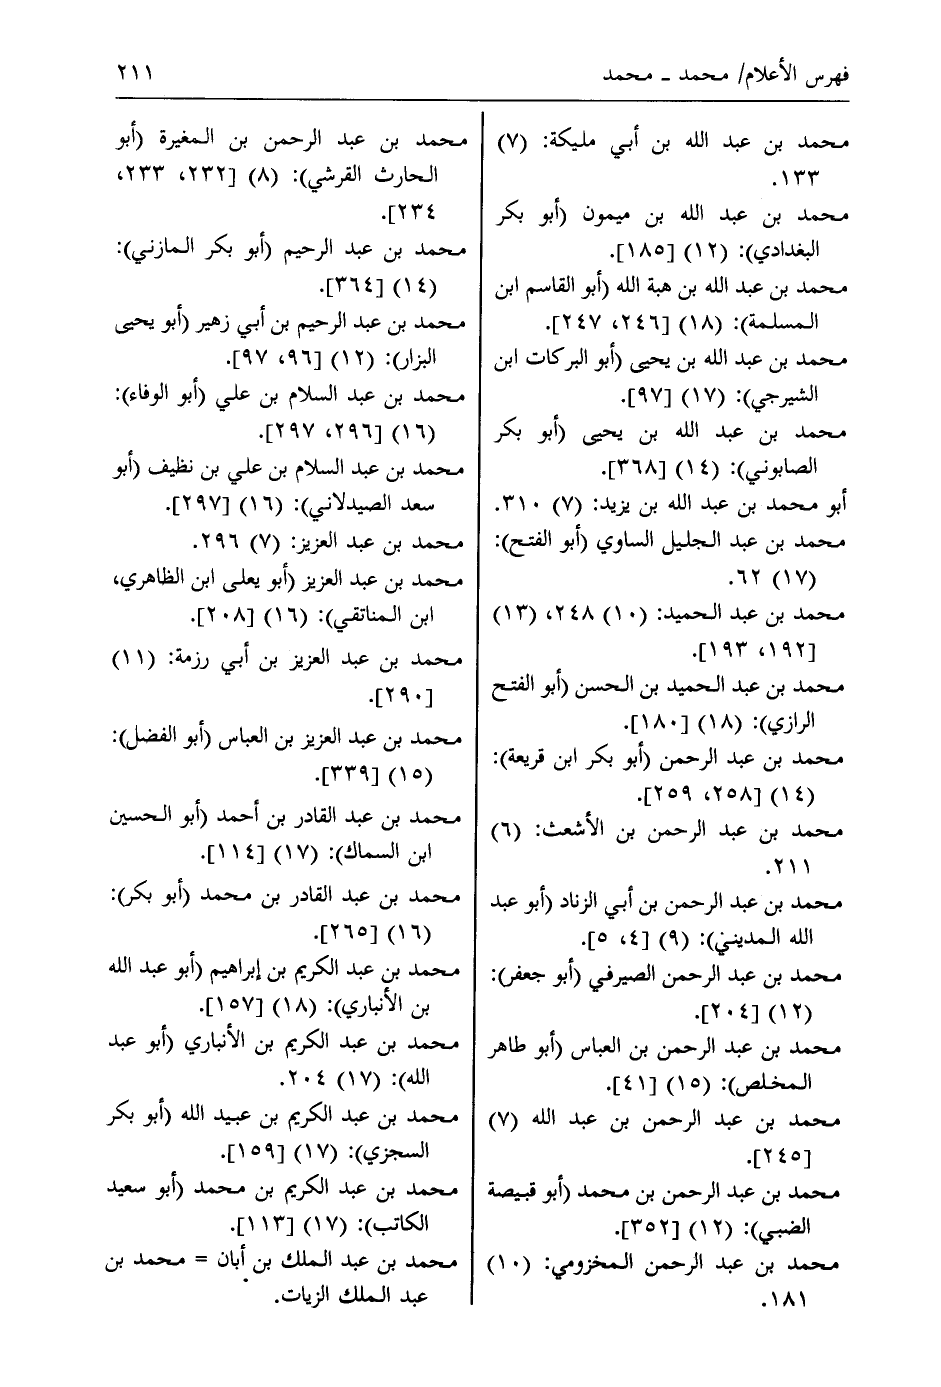 فهرس الأعلام/ محمد ـ محمد
٢١١
محمد بن عبد الله بن أبي مليكة: (٧)
١٣٣.
محمد بن عبد الله بن ميمون (أبو بكر
البغدادي): (١٢) [١٨٥].
محمد بن عبد الله بن هبة الله (أبو القاسم ابن
المسلمة): (١٨) [٢٤٦، ٢٤٧].
محمد بن عبد الله بن يحيى (أبو البركات ابن
الشيرجي): (١٧) [٩٧].
محمد بن عبد الله بن يحيى (أبو بكر
الصابوني): (١٤) [٣٦٨].
أبو محمد بن عبد الله بن يزيد: (٧) ٣١٠.
محمد بن عبد الجليل الساوي (أبو الفتح):
(١٧) ٦٢.
محمد بن عبد الحميد: (١٠) ٢٤٨، (١٣)
[١٩٢، ١٩٣].
محمد بن عبد الحميد بن الحسن (أبو الفتح
الرازي): (١٨) [١٨٠].
محمد بن عبد الرحمن (أبو بكر ابن قريعة):
(١٤) [٢٥٨، ٢٥٩].
محمد بن عبد الرحمن بن الأشعث: (٦)
٢١١.
محمد بن عبد الرحمن بن أبي الزناد (أبو عبد
الله المديني): (٩) [٤، ٥].
محمد بن عبد الرحمن الصيرفي (أبو جعفر):
(١٢) [٢٠٤].
محمد بن عبد الرحمن بن العباس (أبو طاهر
المخلص): (١٥) [٤١].
محمد بن عبد الرحمن بن عبد الله (٧)
[٢٤٥].
محمد بن عبد الرحمن بن محمد (أبو قبيصة
الضبي): (١٢) [٣٥٢].
محمد بن عبد الرحمن المخزومي: (١٠)
١٨١.
محمد بن عبد الرحمن بن المغيرة (أبو
الحارث القرشي): (٨) [٢٣٢، ٢٣٣،
٢٣٤].
محمد بن عبد الرحيم (أبو بكر المازني):
(١٤) [٣٦٤].
محمد بن عبد الرحيم بن أبي زهير (أبو يحيى
البزار): (١٢) [٩٦، ٩٧].
محمد بن عبد السلام بن علي (أبو الوفاء):
(١٦) [٢٩٦، ٢٩٧].
محمد بن عبد السلام بن علي بن نظيف (أبو
سعد الصيدلاني): (١٦) [٢٩٧].
محمد بن عبد العزيز: (٧) ٢٩٦.
محمد بن عبد العزيز (أبو يعلى ابن الظاهري،
ابن المناتقي): (١٦) [٢٠٨].
محمد بن عبد العزيز بن أبي رزمة: (١١)
[٢٩٠].
محمد بن عبد العزيز بن العباس (أبو الفضل):
(١٥) [٣٣٩].
محمد بن عبد القادر بن أحمد (أبو الحسين
ابن السماك): (١٧) [١١٤].
محمد بن عبد القادر بن محمد (أبو بكر):
(١٦) [٢٦٥].
محمد بن عبد الكريم بن إبراهيم (أبو عبد الله
بن الأنباري): (١٨) [١٥٧].
محمد بن عبد الكريم بن الأنباري (أبو عبد
الله): (١٧) ٢٠٤.
محمد بن عبد الكريم بن عبيد الله (أبو بكر
السجزي): (١٧) [١٥٩].
محمد بن عبد الكريم بن محمد (أبو سعيد
الكاتب): (١٧) [١١٣].
محمد بن عبد الملك بن أبان = محمد بن
عبد الملك الزيات.